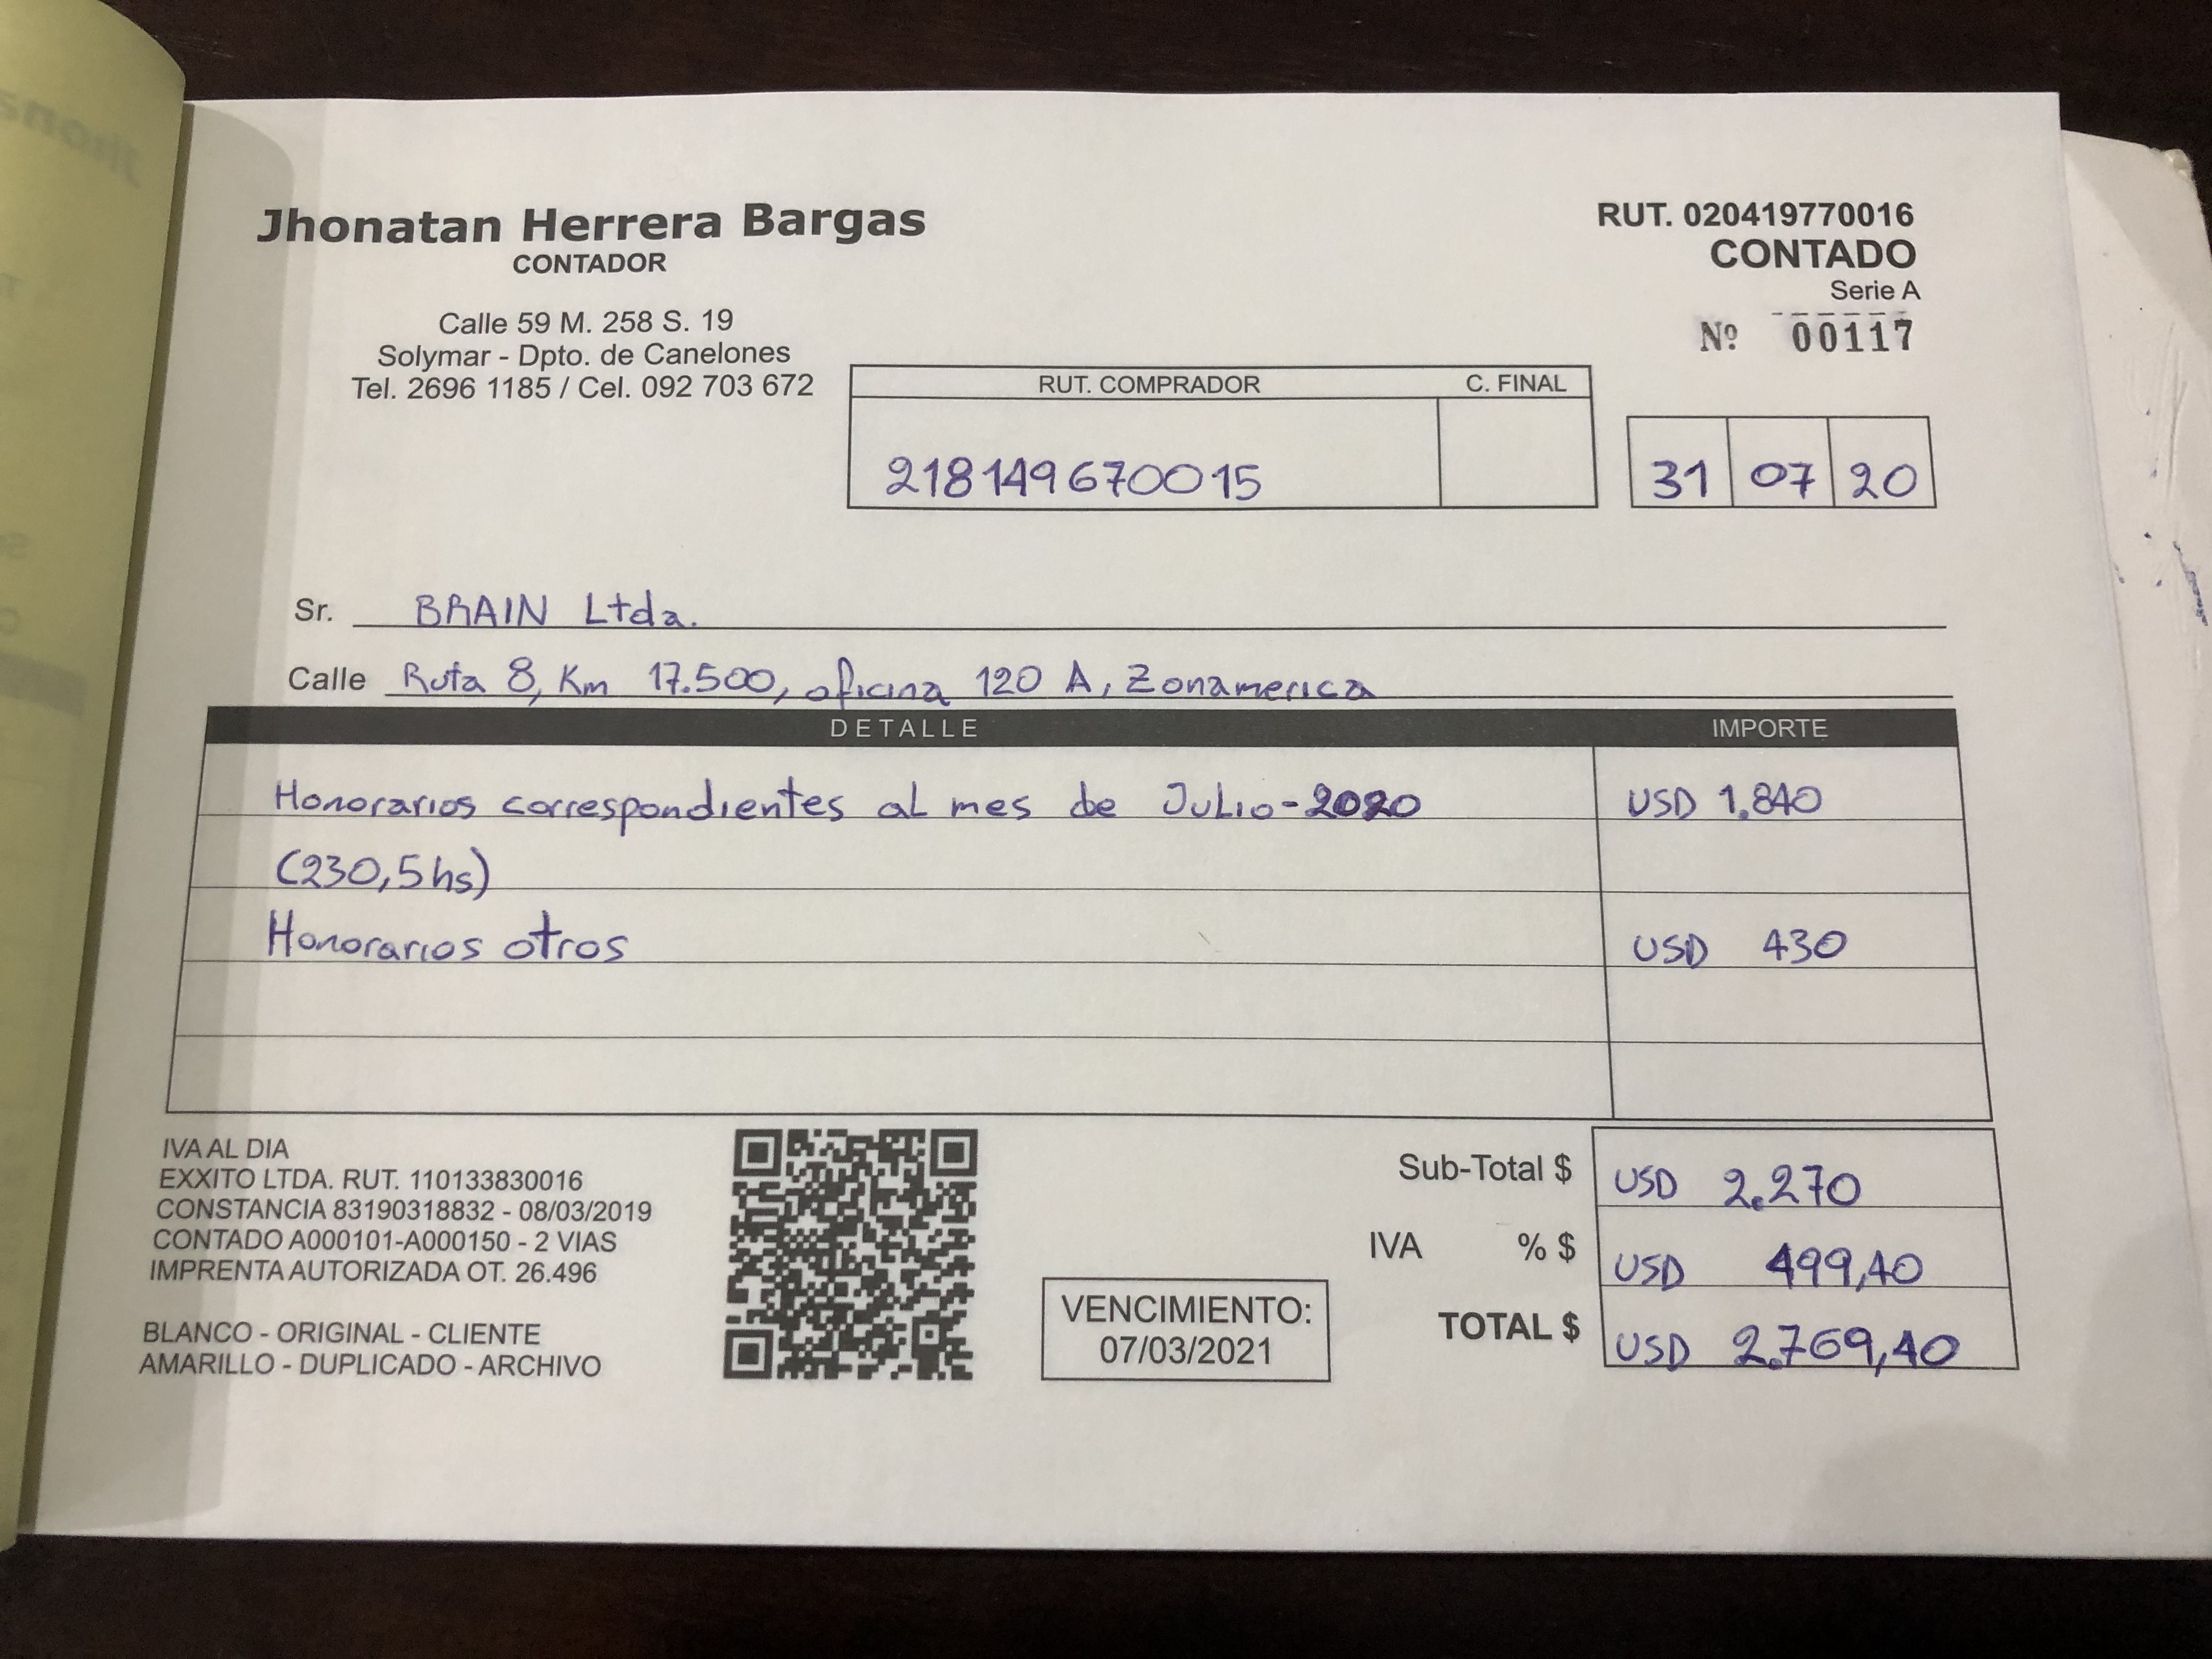 Jhonatan Herrera Bargas
CONTADOR
Calle 59 M. 258 S. 19
Solymar - Dpto. de Canelones
Tel. 2696 1185 / Cel. 092 703 672
RUT. 020419770016
CONTADO
Serie A
Nº 00117
RUT. COMPRADOR C. FINAL
218149670015
31 07 20
Sr. BRAIN Ltda.
Calle Ruta 8, Km 17.500, oficina 120 A, Zonamerica
DETALLE IMPORTE
Honorarios correspondientes al mes de Julio-2020 USD 1.840
(230,5hs)
Honorarios otros USD 430
IVA AL DIA
EXXITO LTDA. RUT. 110133830016
CONSTANCIA 83190318832 - 08/03/2019
CONTADO A000101-A000150 - 2 VIAS
IMPRENTA AUTORIZADA OT. 26.496
BLANCO - ORIGINAL - CLIENTE
AMARILLO - DUPLICADO - ARCHIVO
VENCIMIENTO:
07/03/2021
Sub-Total $ USD 2.270
IVA % $ USD 499,40
TOTAL $ USD 2.769,40